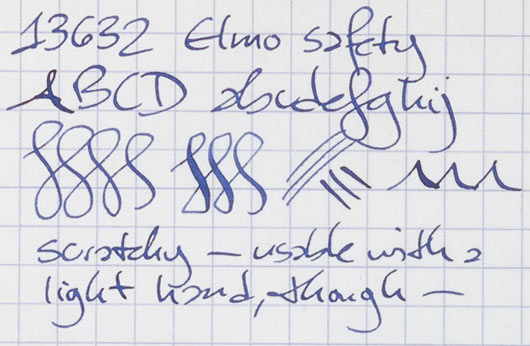 13632 Elmo safety
ABCD abcdefghij
scratchy – usable with a
light hand, though –